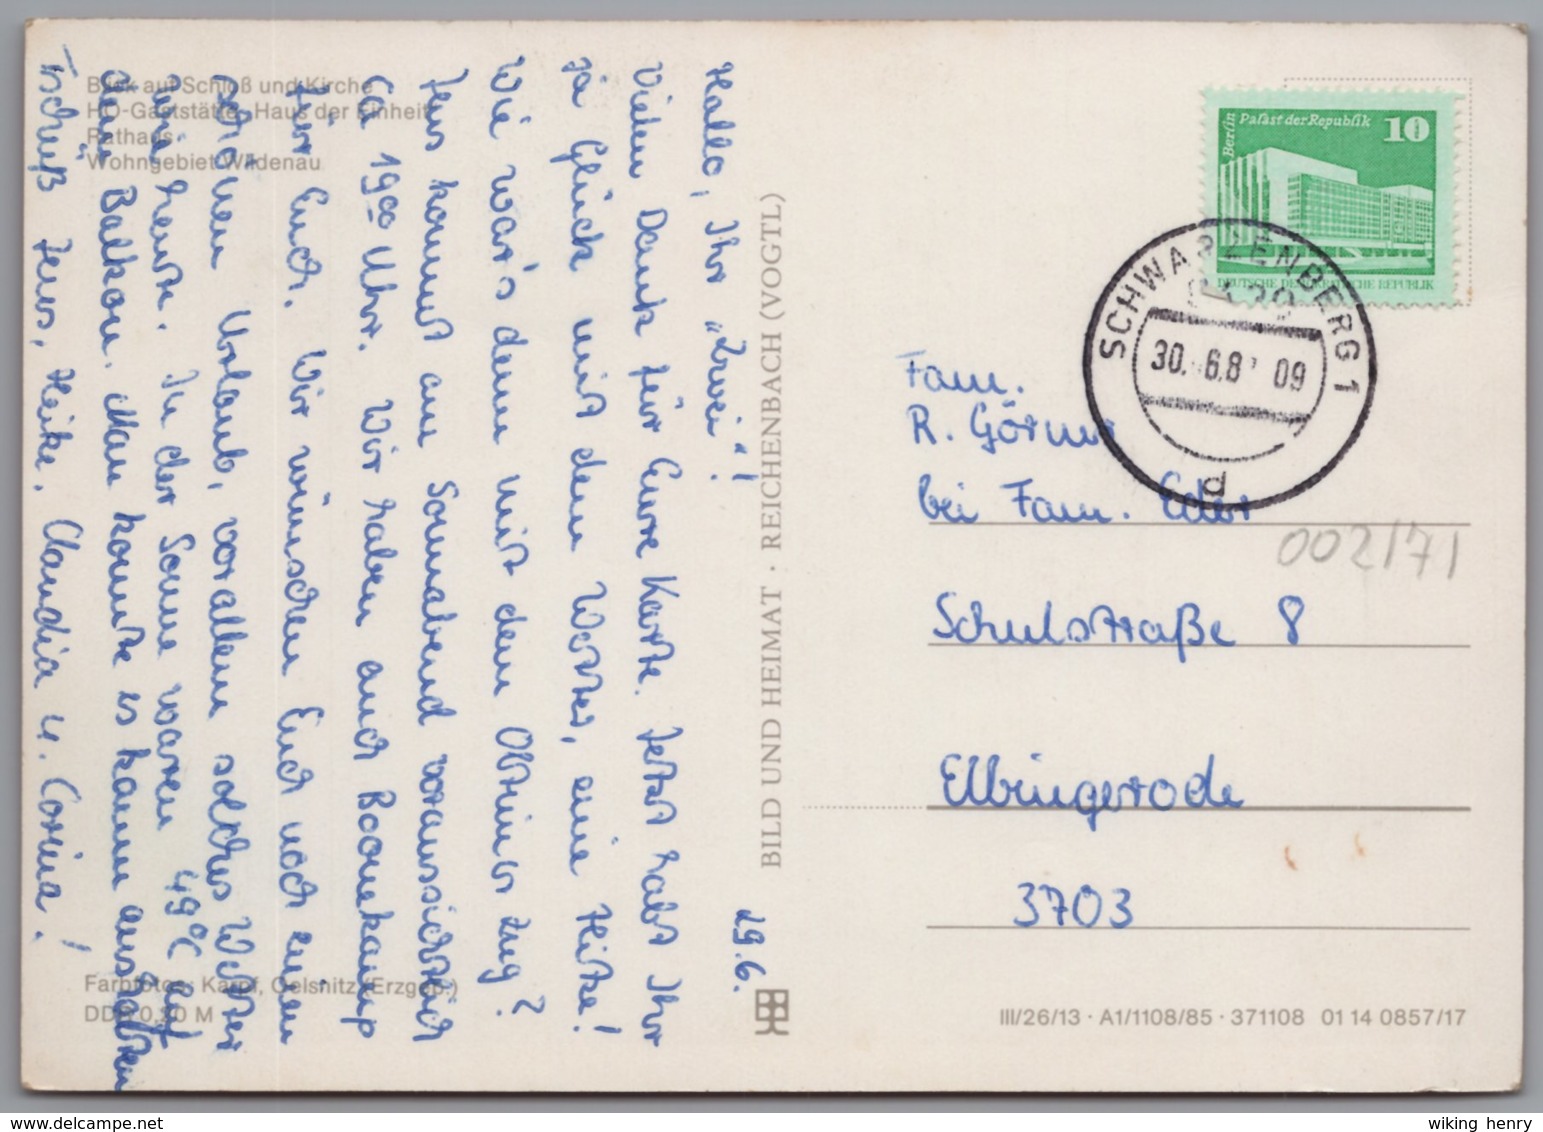 Blick auf Schloß und Kirche
HO-Gaststätte „Haus der Einheit“
Rathaus
Wohngebiet Wildenau
29.6.
Hallo, Ihr „Zwei“!
Vielen Dank für Eure Karte. Jetzt habt Ihr
ja Glück mit dem Wetter, eine Hitze!
Wie war's denn mit dem Zug?
Jens kommt am Sonnabend voraussichtlich
ca 19⁰⁰ Uhr. Wir haben auch
für Euch. Wir wünschen Euch noch einen
schönen Urlaub, vorallem solches Wetter
wie heute. In der Sonne waren 49°C auf
dem Balkon. Man konnte es kaum aushalten
Tschüß Jens, Heike, Claudia u. Corina!
Farbfotos: Karpf, Oelsnitz (Erzgeb.)
DDR 0,20 M
BILD UND HEIMAT · REICHENBACH (VOGTL)
Berlin
Palast der Republik
10
DEUTSCHE DEMOKRATISCHE REPUBLIK
SCHWARZENBERG 1
30. 6.8 09
d
Fam.
R. Görner
bei Fam. Eder
Schulstraße 8
Elbingerode
3703
002171
III/26/13 · A1/1108/85 · 371108 01 14 0857/17
wiking henry